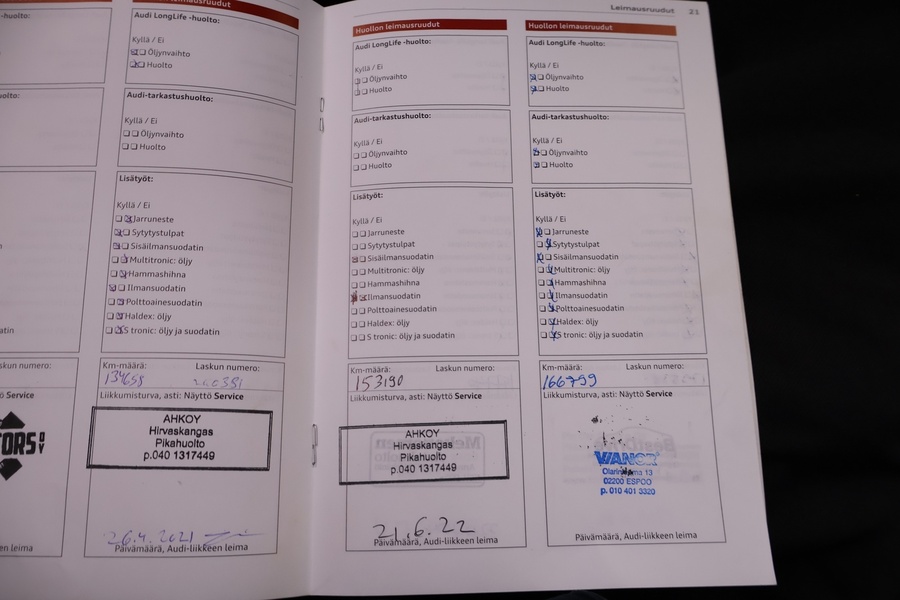 Leimausruudut 21
uolto:
askun numero:
ö Service
TORS OY
en leima
Audi LongLife -huolto:
Kyllä / Ei
Öljynvaihto
Huolto
Audi-tarkastushuolto:
Kyllä / Ei
Öljynvaihto
Huolto
Lisätyöt:
Kyllä / Ei
Jarruneste
Sytytystulpat
Sisäilmansuodatin
Multitronic: öljy
Hammashihna
Ilmansuodatin
Polttoainesuodatin
Haldex: öljy
S tronic: öljy ja suodatin
Km-määrä: Laskun numero:
134658
Liikkumisturva, asti: Näyttö Service
AHKOY
Hirvaskangas
Pikahuolto
p.040 1317449
26.4.2021
Päivämäärä, Audi-liikkeen leima
Huollon leimausruudut
Audi LongLife -huolto:
Kyllä / Ei
Öljynvaihto
Huolto
Audi-tarkastushuolto:
Kyllä / Ei
Öljynvaihto
Huolto
Lisätyöt:
Kyllä / Ei
Jarruneste
Sytytystulpat
Sisäilmansuodatin
Multitronic: öljy
Hammashihna
Ilmansuodatin
Polttoainesuodatin
Haldex: öljy
S tronic: öljy ja suodatin
Km-määrä: Laskun numero:
153190
Liikkumisturva, asti: Näyttö Service
AHKOY
Hirvaskangas
Pikahuolto
p.040 1317449
21.6.22
Päivämäärä, Audi-liikkeen leima
Huollon leimausruudut
Audi LongLife -huolto:
Kyllä / Ei
Öljynvaihto
Huolto
Audi-tarkastushuolto:
Kyllä / Ei
Öljynvaihto
Huolto
Lisätyöt:
Kyllä / Ei
Jarruneste
Sytytystulpat
Sisäilmansuodatin
Multitronic: öljy
Hammashihna
Ilmansuodatin
Polttoainesuodatin
Haldex: öljy
S tronic: öljy ja suodatin
Km-määrä: Laskun numero:
166799
Liikkumisturva, asti: Näyttö Service
WIANOR
13
02200 ESPOO
p. 010 401 3320
Päivämäärä, Audi-liikkeen leima